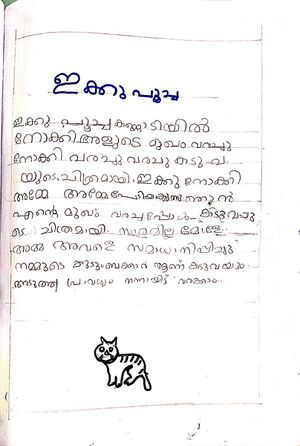 ഇക്കു പൂച്ച
ഇക്കു പൂച്ച കണ്ണാടിയിൽ
നോക്കി അളുടെ മുഖം വരച്ചു
നോക്കി വരച്ചു വരച്ചു കടുവ
യുടെ ചിത്രമായി. ഇക്കു നോക്കി
അമ്മേ അമ്മേ ഞാൻ
എന്റെ മുഖം വരച്ചപ്പോൾ കടുവയു
ടെ ചിത്രമായി. സാരമില്ല മോളേ
അമ്മ അവളെ സമാധാനിപ്പിച്ചു
നമ്മുടെ കുടുംബക്കാർ ആണ് കടുവയും
അടുത്ത പ്രാവശ്യം നന്നായിട്ട് വരക്കാം.